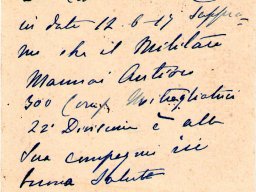 in data 12-6-17 Sappia
mo che il Militare
Mannai Antioco
300 Comp Mitragliatrici
22ª Divisione è alla
Sua compagnia in
buona Salute